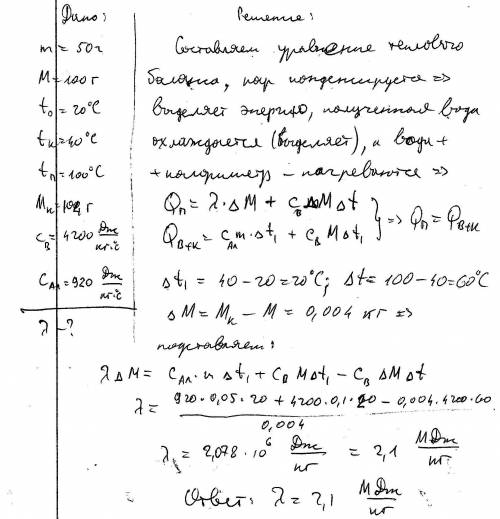 Дано:
m = 50г
M = 100 г
t₀ = 20°C
tк = 40°C
tп = 100°C
Mк = 104 г
cв = 4200 Дж/кг·°C
cАл = 920 Дж/кг·°C
λ - ?
Решение:
Составляем уравнение теплового
баланса, пар конденсируется =>
выделяет энергию, полученная вода
охлаждается (выделяет), а вода +
+ калориметр - нагреваются =>
Qп = λ·ΔM + cвΔMΔt
Qв+к = cАл m·Δt₁ + cв MΔt₁ } => Qп = Qв+к
Δt₁ = 40 - 20 = 20°C; Δt = 100 - 40 = 60°C
ΔM = Mк - M = 0,004 кг =>
подставляем:
λΔM = cАл·m Δt₁ + cв MΔt₁ - cв ΔM Δt
λ = (920·0,05·20 + 4200·0,1·20 - 0,004·4200·60) / 0,004
λ = 2,078·10⁶ Дж/кг = 2,1 МДж/кг
Ответ: λ = 2,1 МДж/кг